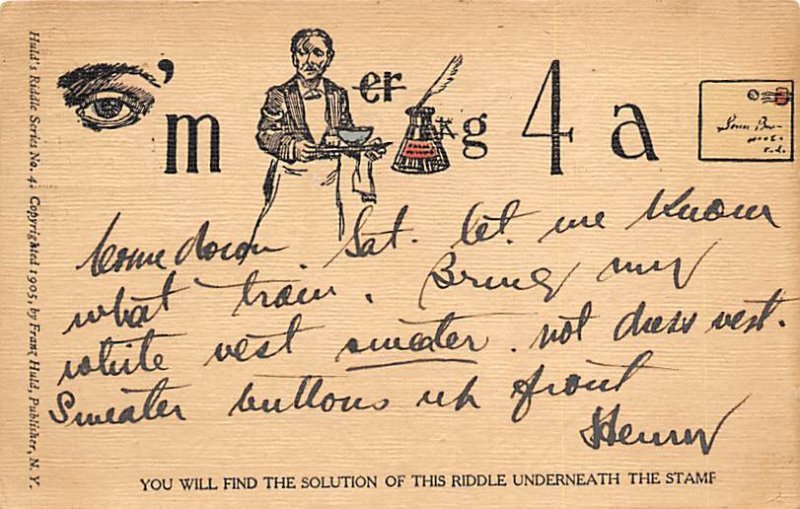 'm er k g 4 a
Come down. Sat. let me know
what train. Bring my
white vest sweater. not dress vest.
Sweater buttons up front
Henry
YOU WILL FIND THE SOLUTION OF THIS RIDDLE UNDERNEATH THE STAMP
Huld's Riddle Series No. 4. Copyrighted 1905, by Franz Huld, Publisher, N. Y.